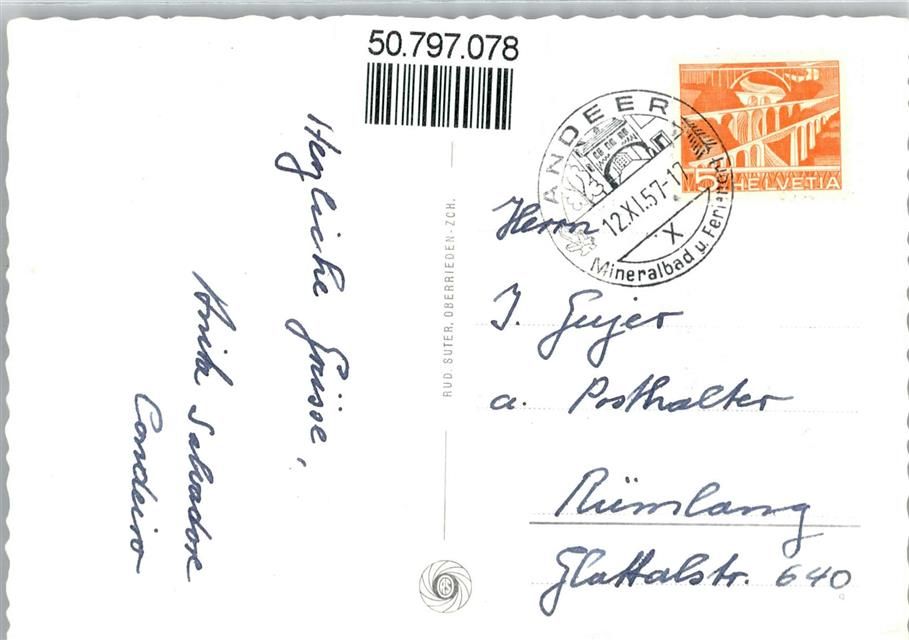 50.797.078
ANDEER
12.XI.57-17
X
Mineralbad u.
5 HELVETIA
Herzliche Grüsse,
Anita Salvadore
RUD. SUTER, OBERRIEDEN-ZCH.
Herrn
J. Gujer
a. Posthalter
Rümlang
Glattalstr. 640